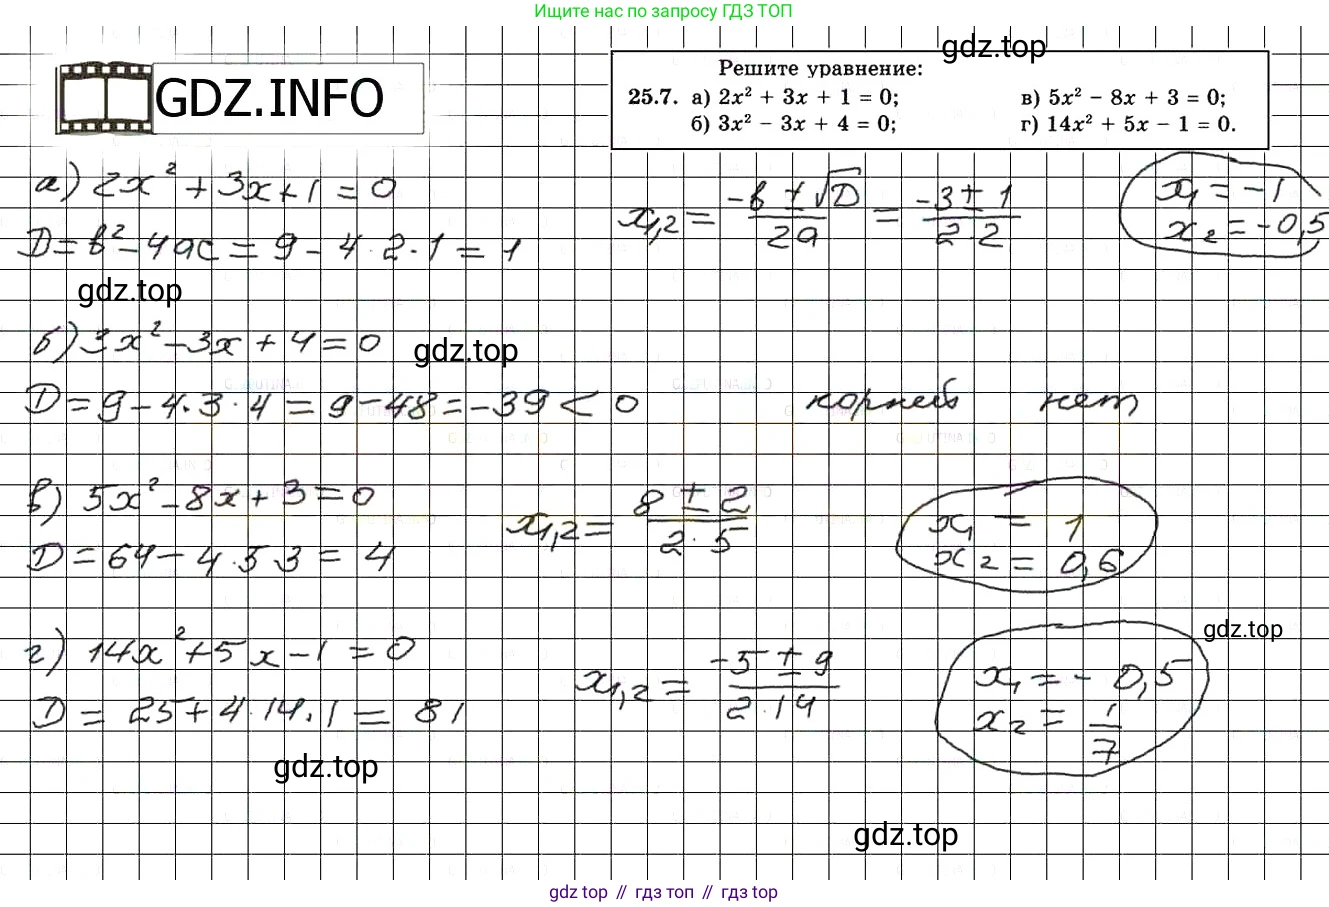 Ищите нас по запросу ГДЗ ТОП
gdz.top
GDZ.INFO
Решите уравнение:
25.7. а) 2x² + 3x + 1 = 0; в) 5x² − 8x + 3 = 0;
б) 3x² − 3x + 4 = 0; г) 14x² + 5x − 1 = 0.
а) 2x² + 3x + 1 = 0
D = b² − 4ac = 9 − 4 · 2 · 1 = 1
x₁,₂ = (−b ± √D)/(2a) = (−3 ± 1)/(2 · 2)
x₁ = −1
x₂ = −0,5
gdz.top
б) 3x² − 3x + 4 = 0
gdz.top
D = 9 − 4 · 3 · 4 = 9 − 48 = −39 < 0 корней нет
в) 5x² − 8x + 3 = 0
D = 64 − 4 · 5 · 3 = 4
x₁,₂ = (8 ± 2)/(2 · 5)
x₁ = 1
x₂ = 0,6
gdz.top
г) 14x² + 5x − 1 = 0
D = 25 + 4 · 14 · 1 = 81
x₁,₂ = (−5 ± 9)/(2 · 14)
x₁ = −0,5
x₂ = 1/7
gdz.top
gdz.top
gdz top // гдз топ // гдз top